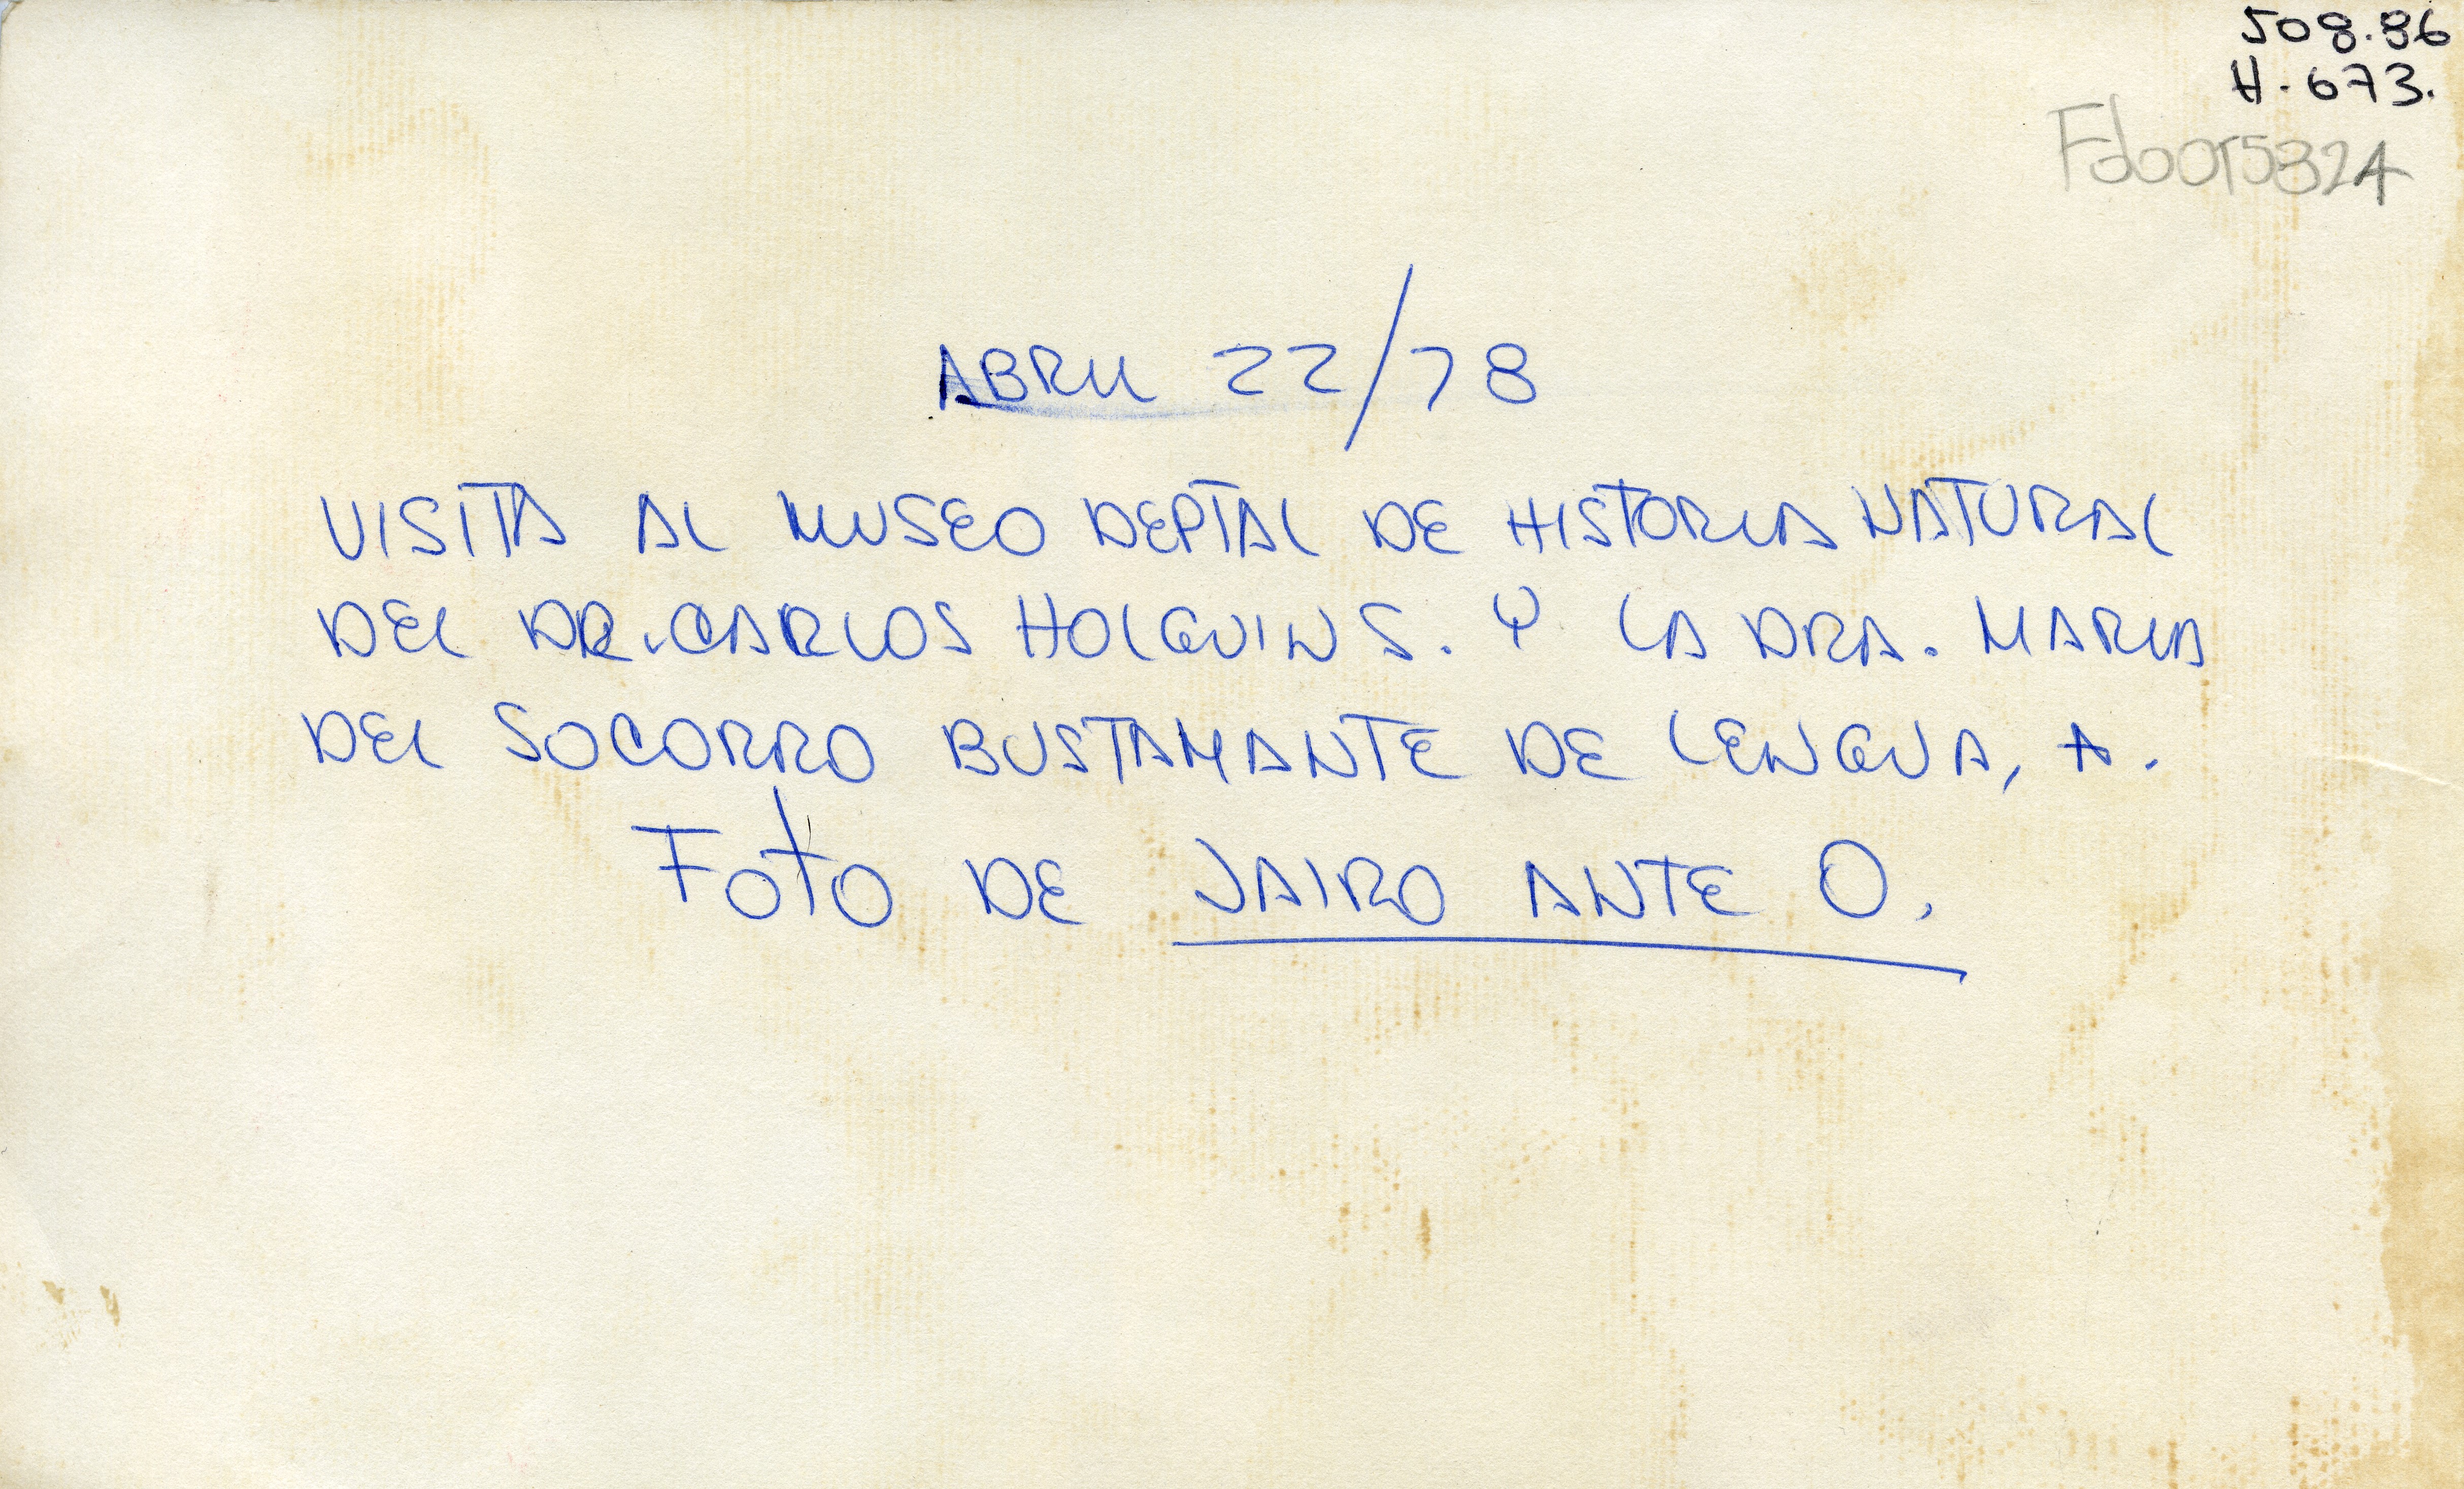 508.86
H-673.
Fdo015324
ABRIL 22/78
VISITA AL MUSEO DEPTAL DE HISTORIA NATURAL
DEL DR. CARLOS HOLGUIN S. Y LA DRA. MARIA
DEL SOCORRO BUSTAMANTE DE LENGUA, A.
FOTO DE JAIRO ANTE O.